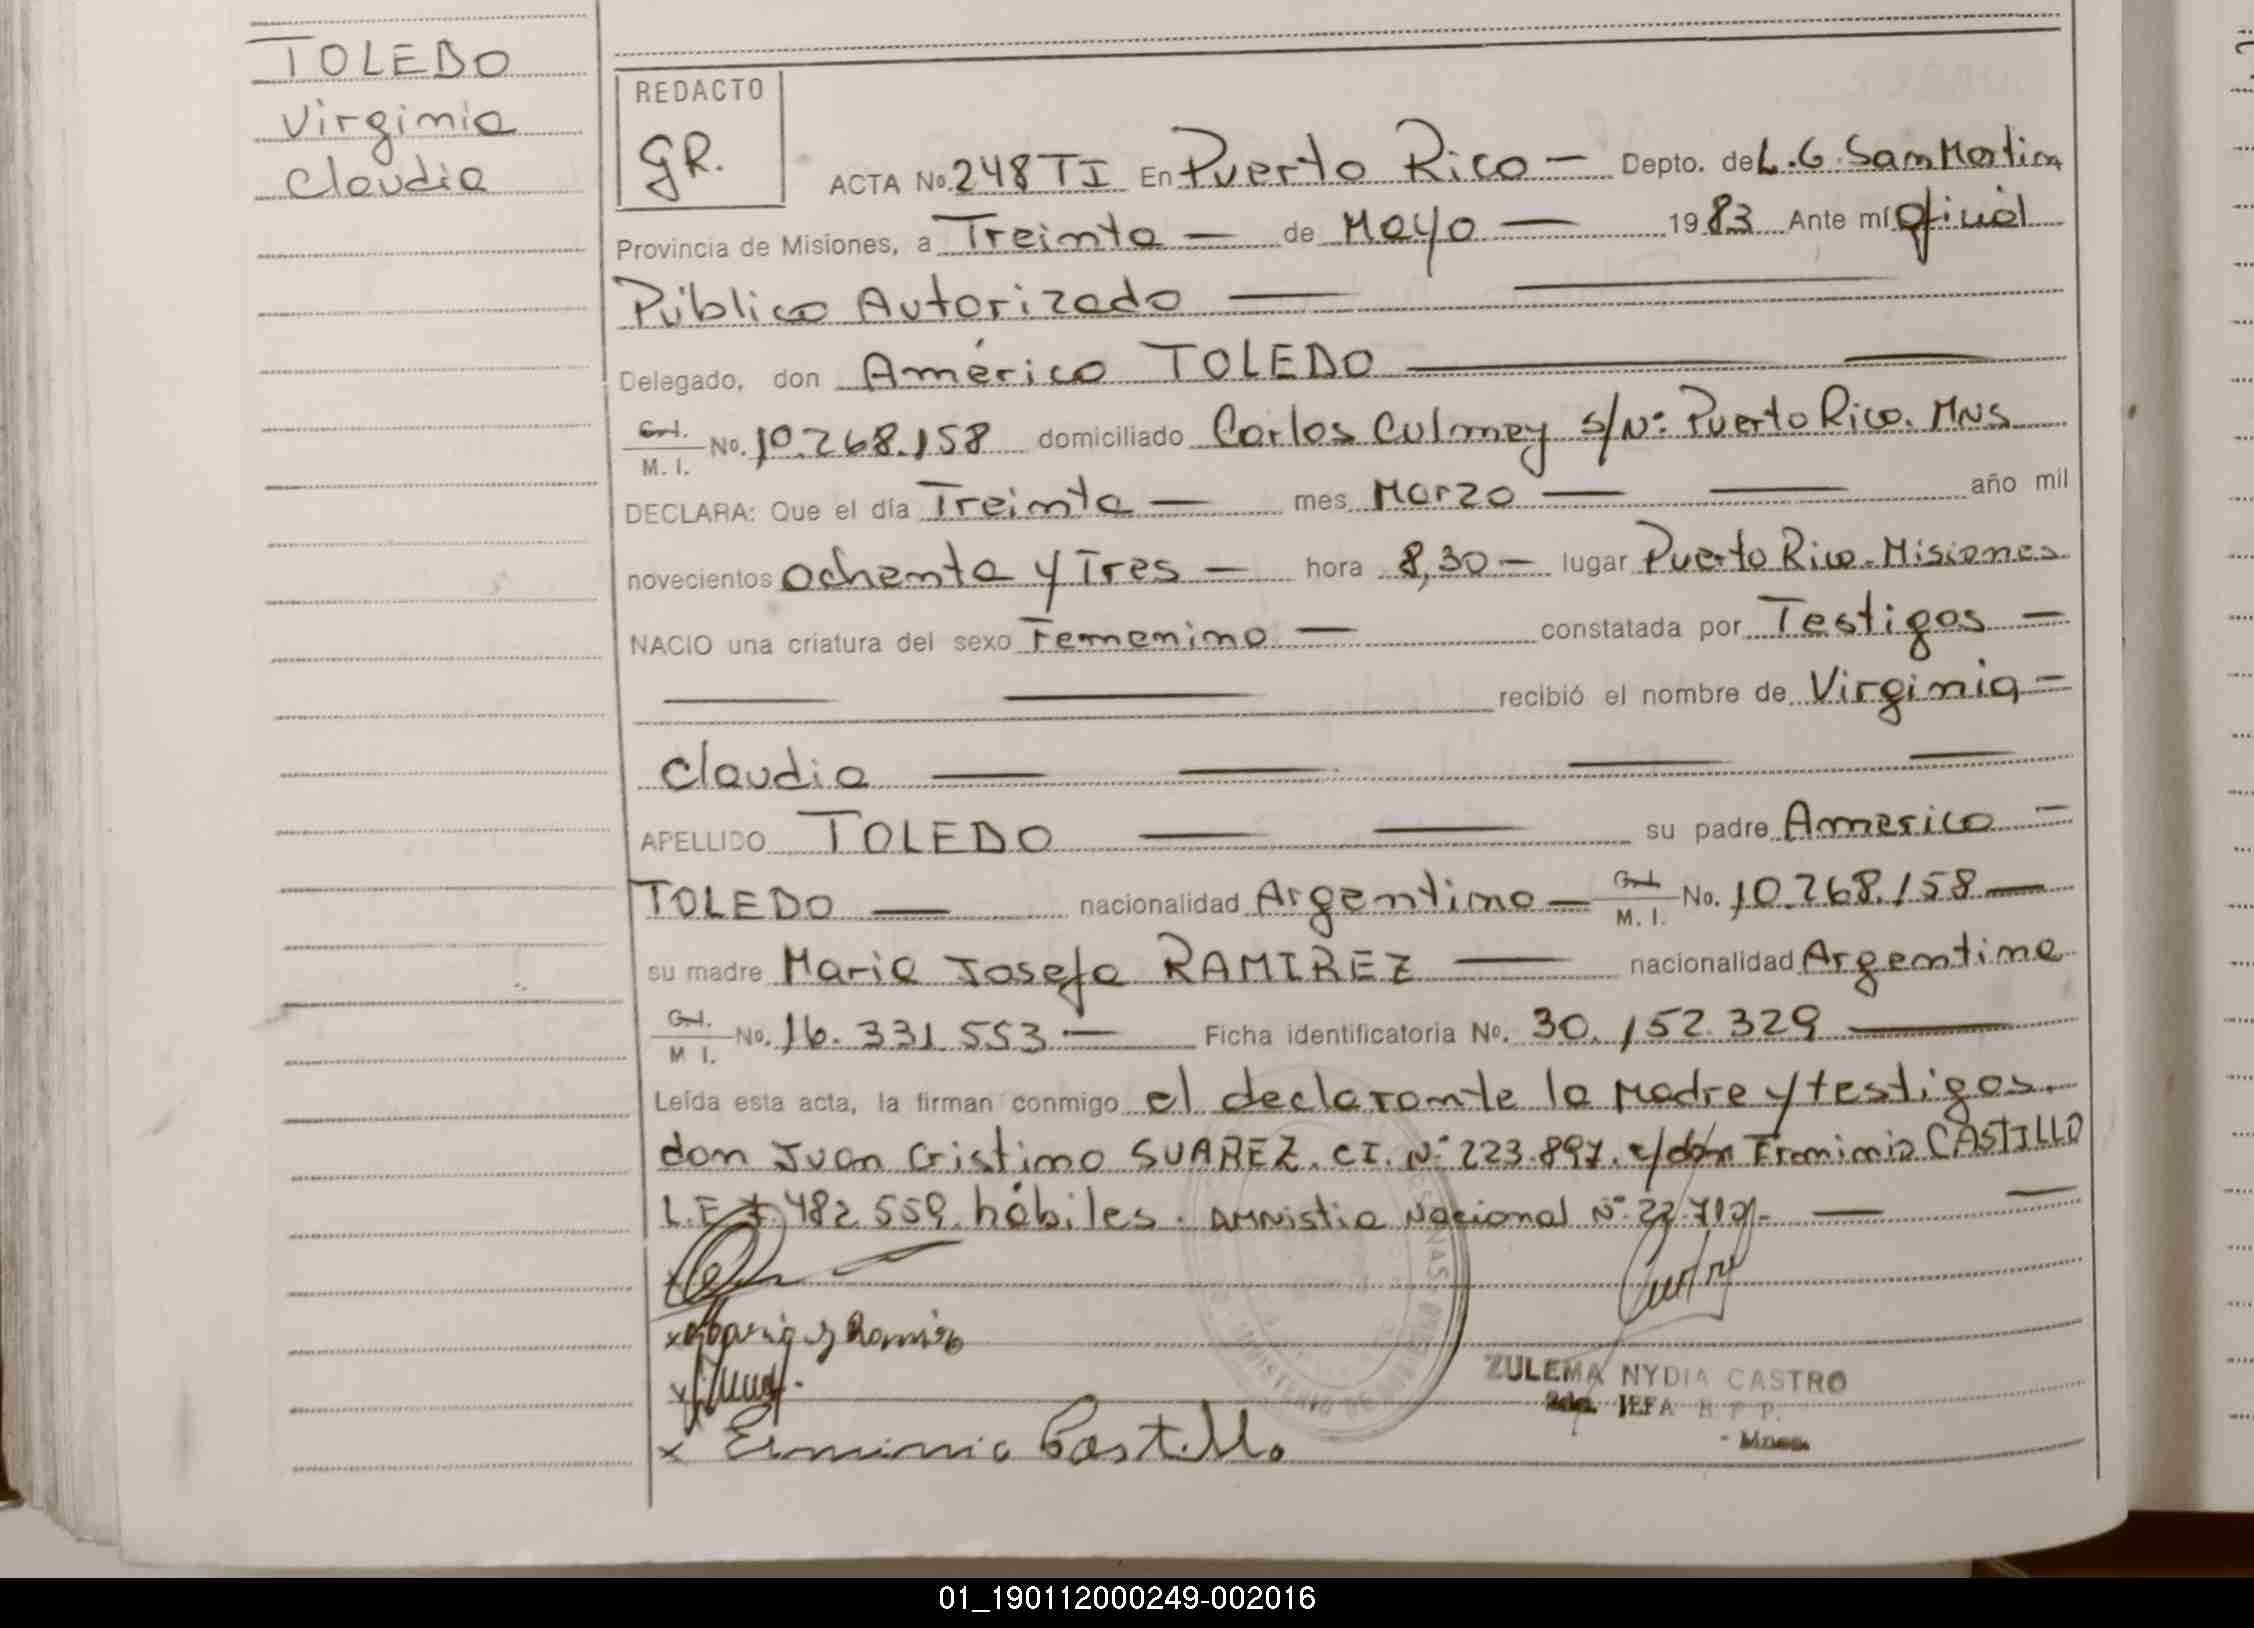 TOLEDO
Virginia
Claudia
REDACTO
GR.
ACTA No. 248 TI En Puerto Rico — Depto. de L.G. San Martin
Provincia de Misiones, a Treinta — de Mayo — 1983 Ante mí Oficial
Público Autorizado —
Delegado, don Américo TOLEDO —
C.I. M.I. No. 10.268.158 domiciliado Carlos Culmey s/Nº Puerto Rico. MNS
DECLARA: Que el día Treinta — mes Marzo — año mil
novecientos ochenta y Tres — hora 8,30 — lugar Puerto Rico. Misiones
NACIO una criatura del sexo Femenino — constatada por Testigos —
recibió el nombre de Virginia =
Claudia —
APELLIDO TOLEDO — su padre Americo =
TOLEDO — nacionalidad Argentino — C.I. M.I. No. 10.268.158 —
su madre Maria Josefa RAMIREZ — nacionalidad Argentina
C.I. M.I. No. 16.331.553 — Ficha identificatoria No. 30.152.329 —
Leída esta acta, la firman conmigo el declarante la Madre y testigos.
don Juan Cristino SUAREZ. C.I. Nº 223.897. y don Erminio CASTILLO
L.E 482.559 hábiles. Amnistia Nacional Nº
Maria J Ramirez
x Erminio Castillo
ZULEMA NYDIA CASTRO
2da. JEFA R P P.
Mnes.
01_190112000249-002016